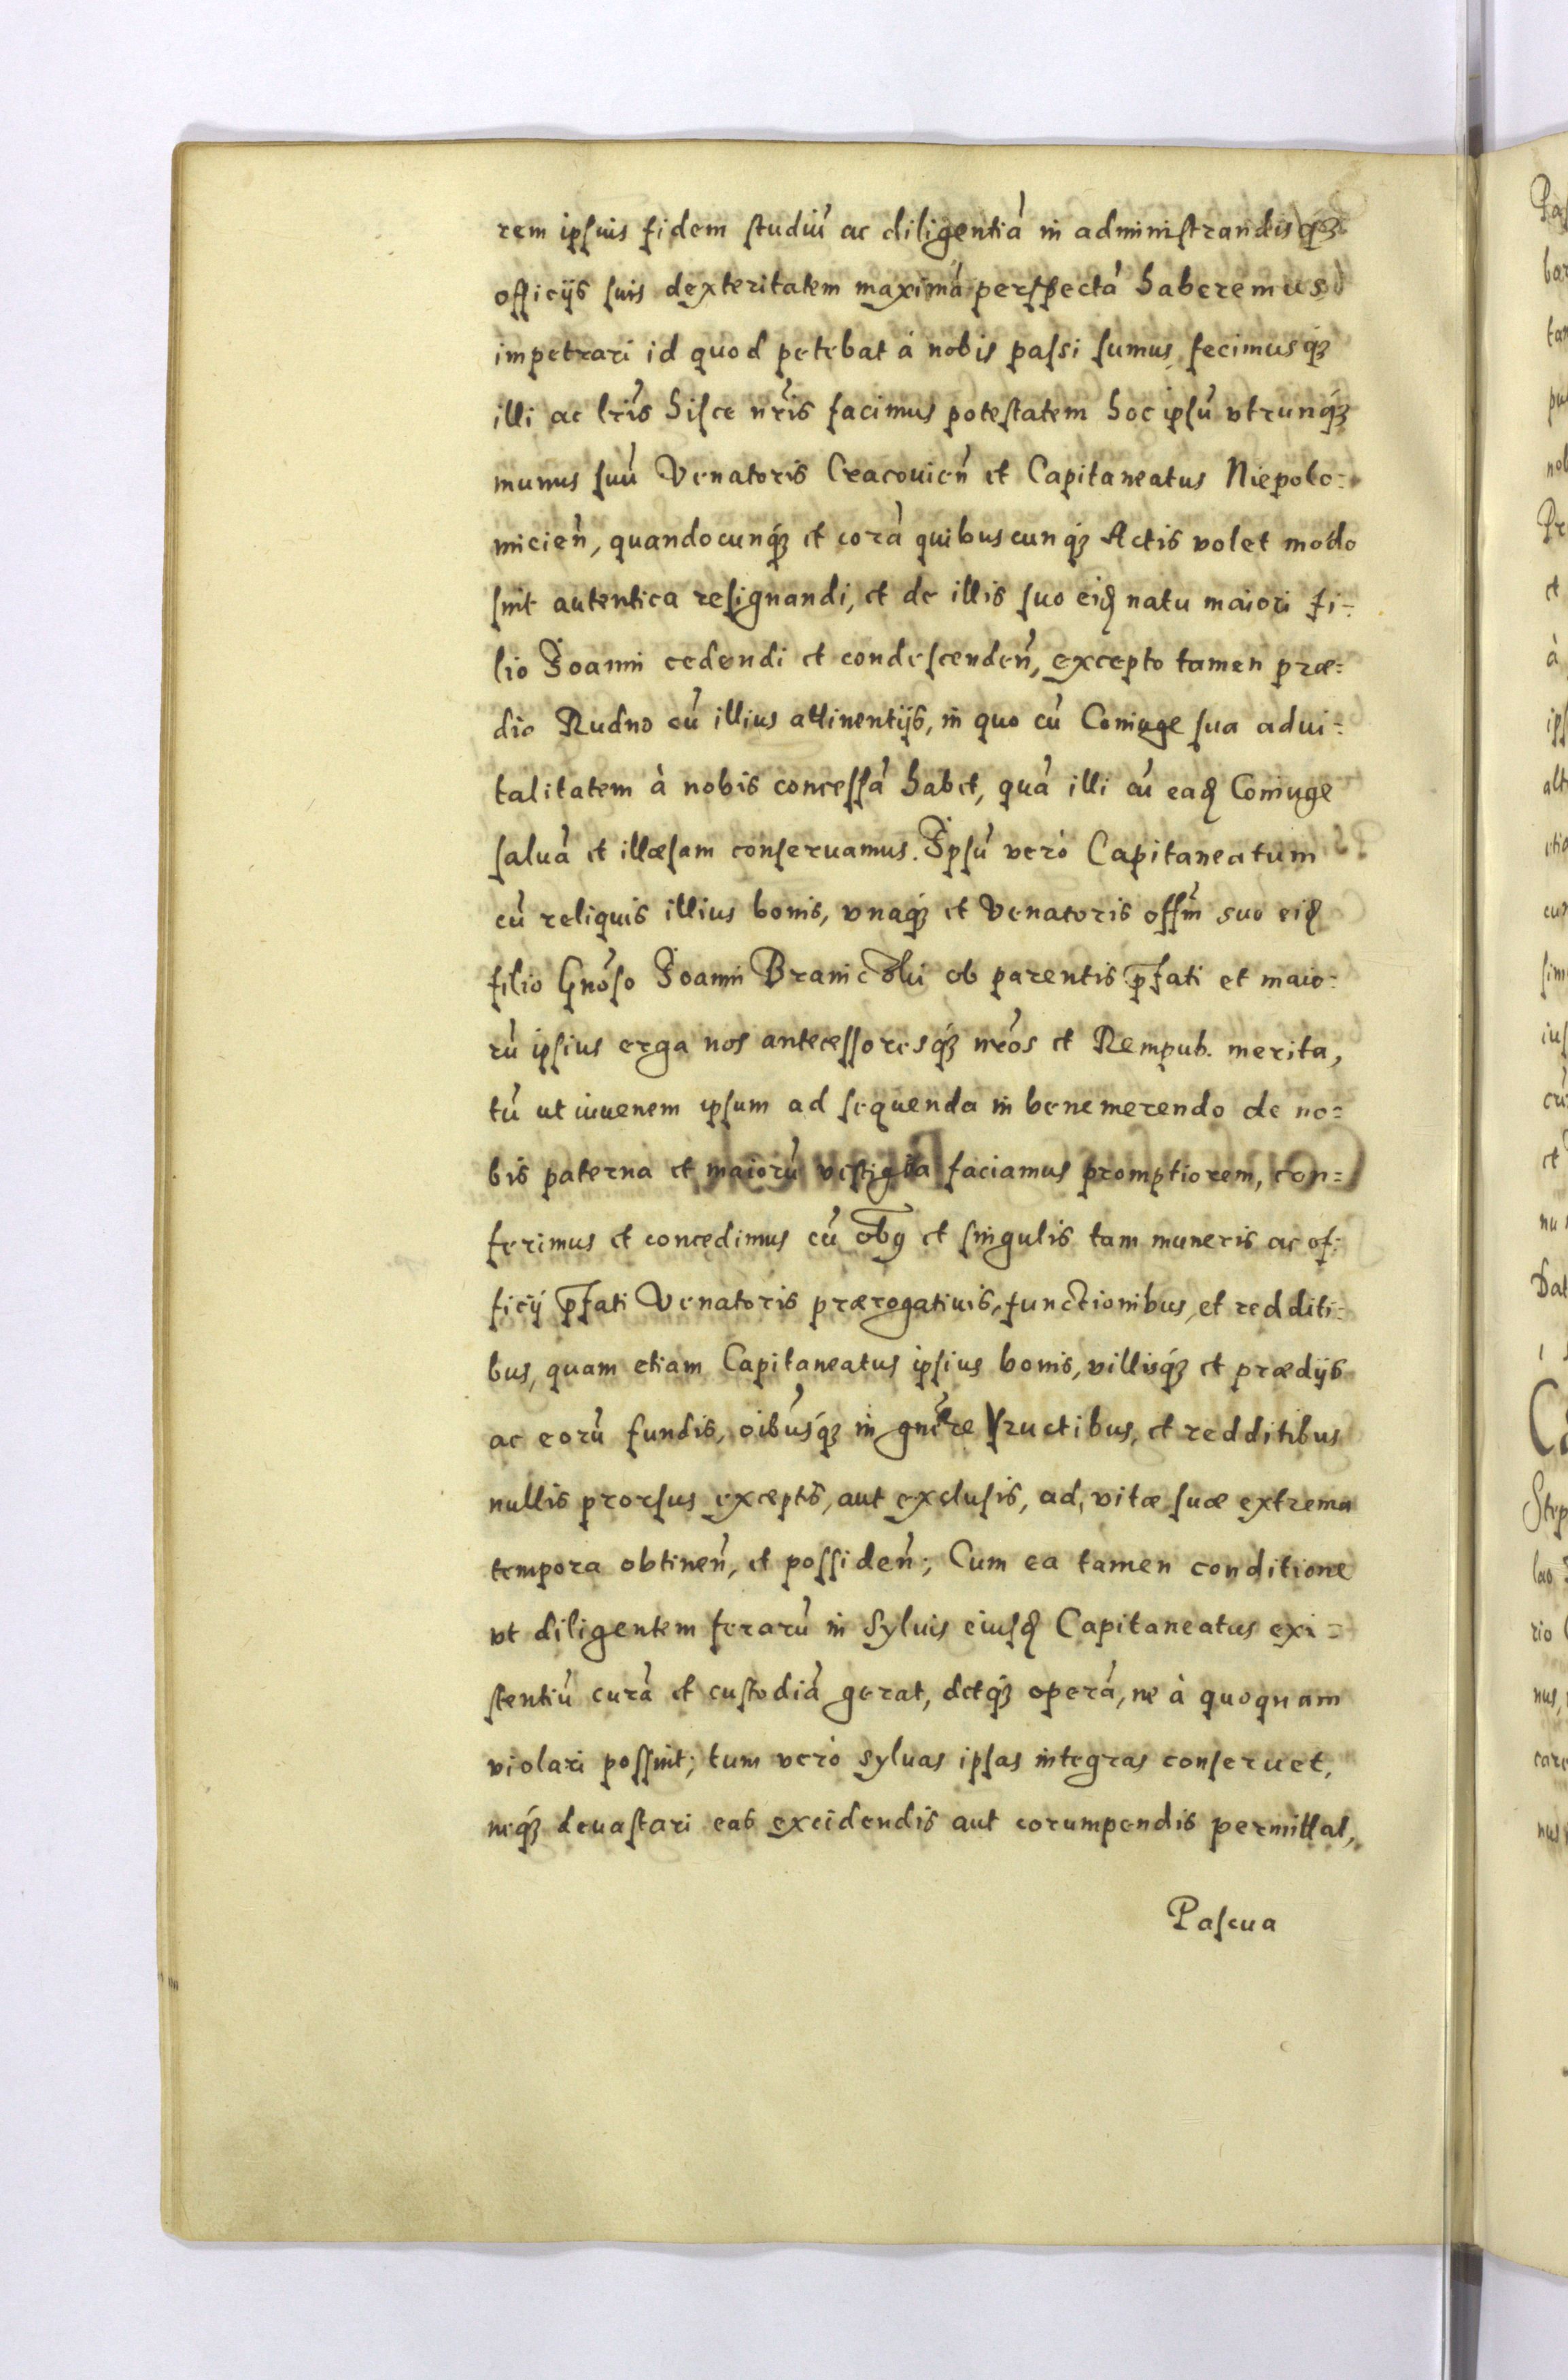 rem ipſius fidem ſtudiũ ac diligentiã in adminiſtrandisq́ꝫ
officijs ſuis dexteritatem maximã perſpectã haberemus
impetrari id quod petebat à nobis paſsi ſumus, fecimusq́ꝫ
illi ac lr̃is hiſce nr̃is facimus poteſtatem hoc ipſũ vtrunq́ꝫ
munus ſuũ Venatoris Cracouien̄ et Capitaneatus Niepolo=
micien̄, quandocunq́ꝫ et corã quibuscunq́ꝫ Actis volet modo
ſint autentica reſignandi, et de illis ſuo eid natu maiori fi=
lio Joanni cedendi et condeſcenden̄, excepto tamen præ=
dio Rudno cũ illius attinentijs, in quo cũ Coniuge ſua advi=
talitatem à nobis conceſſã habet, quã illi cũ ead Coniuge
ſaluã et illæſam conſeruamus. Ipſũ verò Capitaneatum
cũ reliquis illius bonis, vnaq́ꝫ et Venatoris off̃m suo eid
filio Gñoſo Joanni Branicɔ̃ki ob parentis p̄fati et maio=
rũ ipſius erga nos anteceſſoresq́ꝫ nr̃os et Rempub. merita,
tũ ut iuuenem ipſum ad ſequenda in benemerendo de no=
bis paterna et maiorũ veſtigia faciamus promptiorem, con=
ferimus et concedimus cũ õbꝯ et ſingulis tam muneris ac of=
ficij p̄fati Venatoris prærogatiuis, functionibus, et redditi=
bus, quam etiam Capitaneatus ipſius bonis, villisq́ꝫ et prædijs
ac eorũ fundis, oĩbusq́ꝫ in gñere fructibus, et redditibus
nullis prorſus exceptis, aut excluſis, ad, vitæ ſuæ extrema
tempora obtinen̄, et poſſiden̄; Cum ea tamen conditione
vt diligentem ferarũ in Syluis eiuſd Capitaneatus exi=
ſtentiũ curã et cuſtodiã gerat, detq́ꝫ operã, ne à quoquam
violari poſſint; tum verò syluas ipſas integras conſeruet,
neq́ꝫ deuaſtari eas excidendis aut corumpendis permittat,
Paſcua